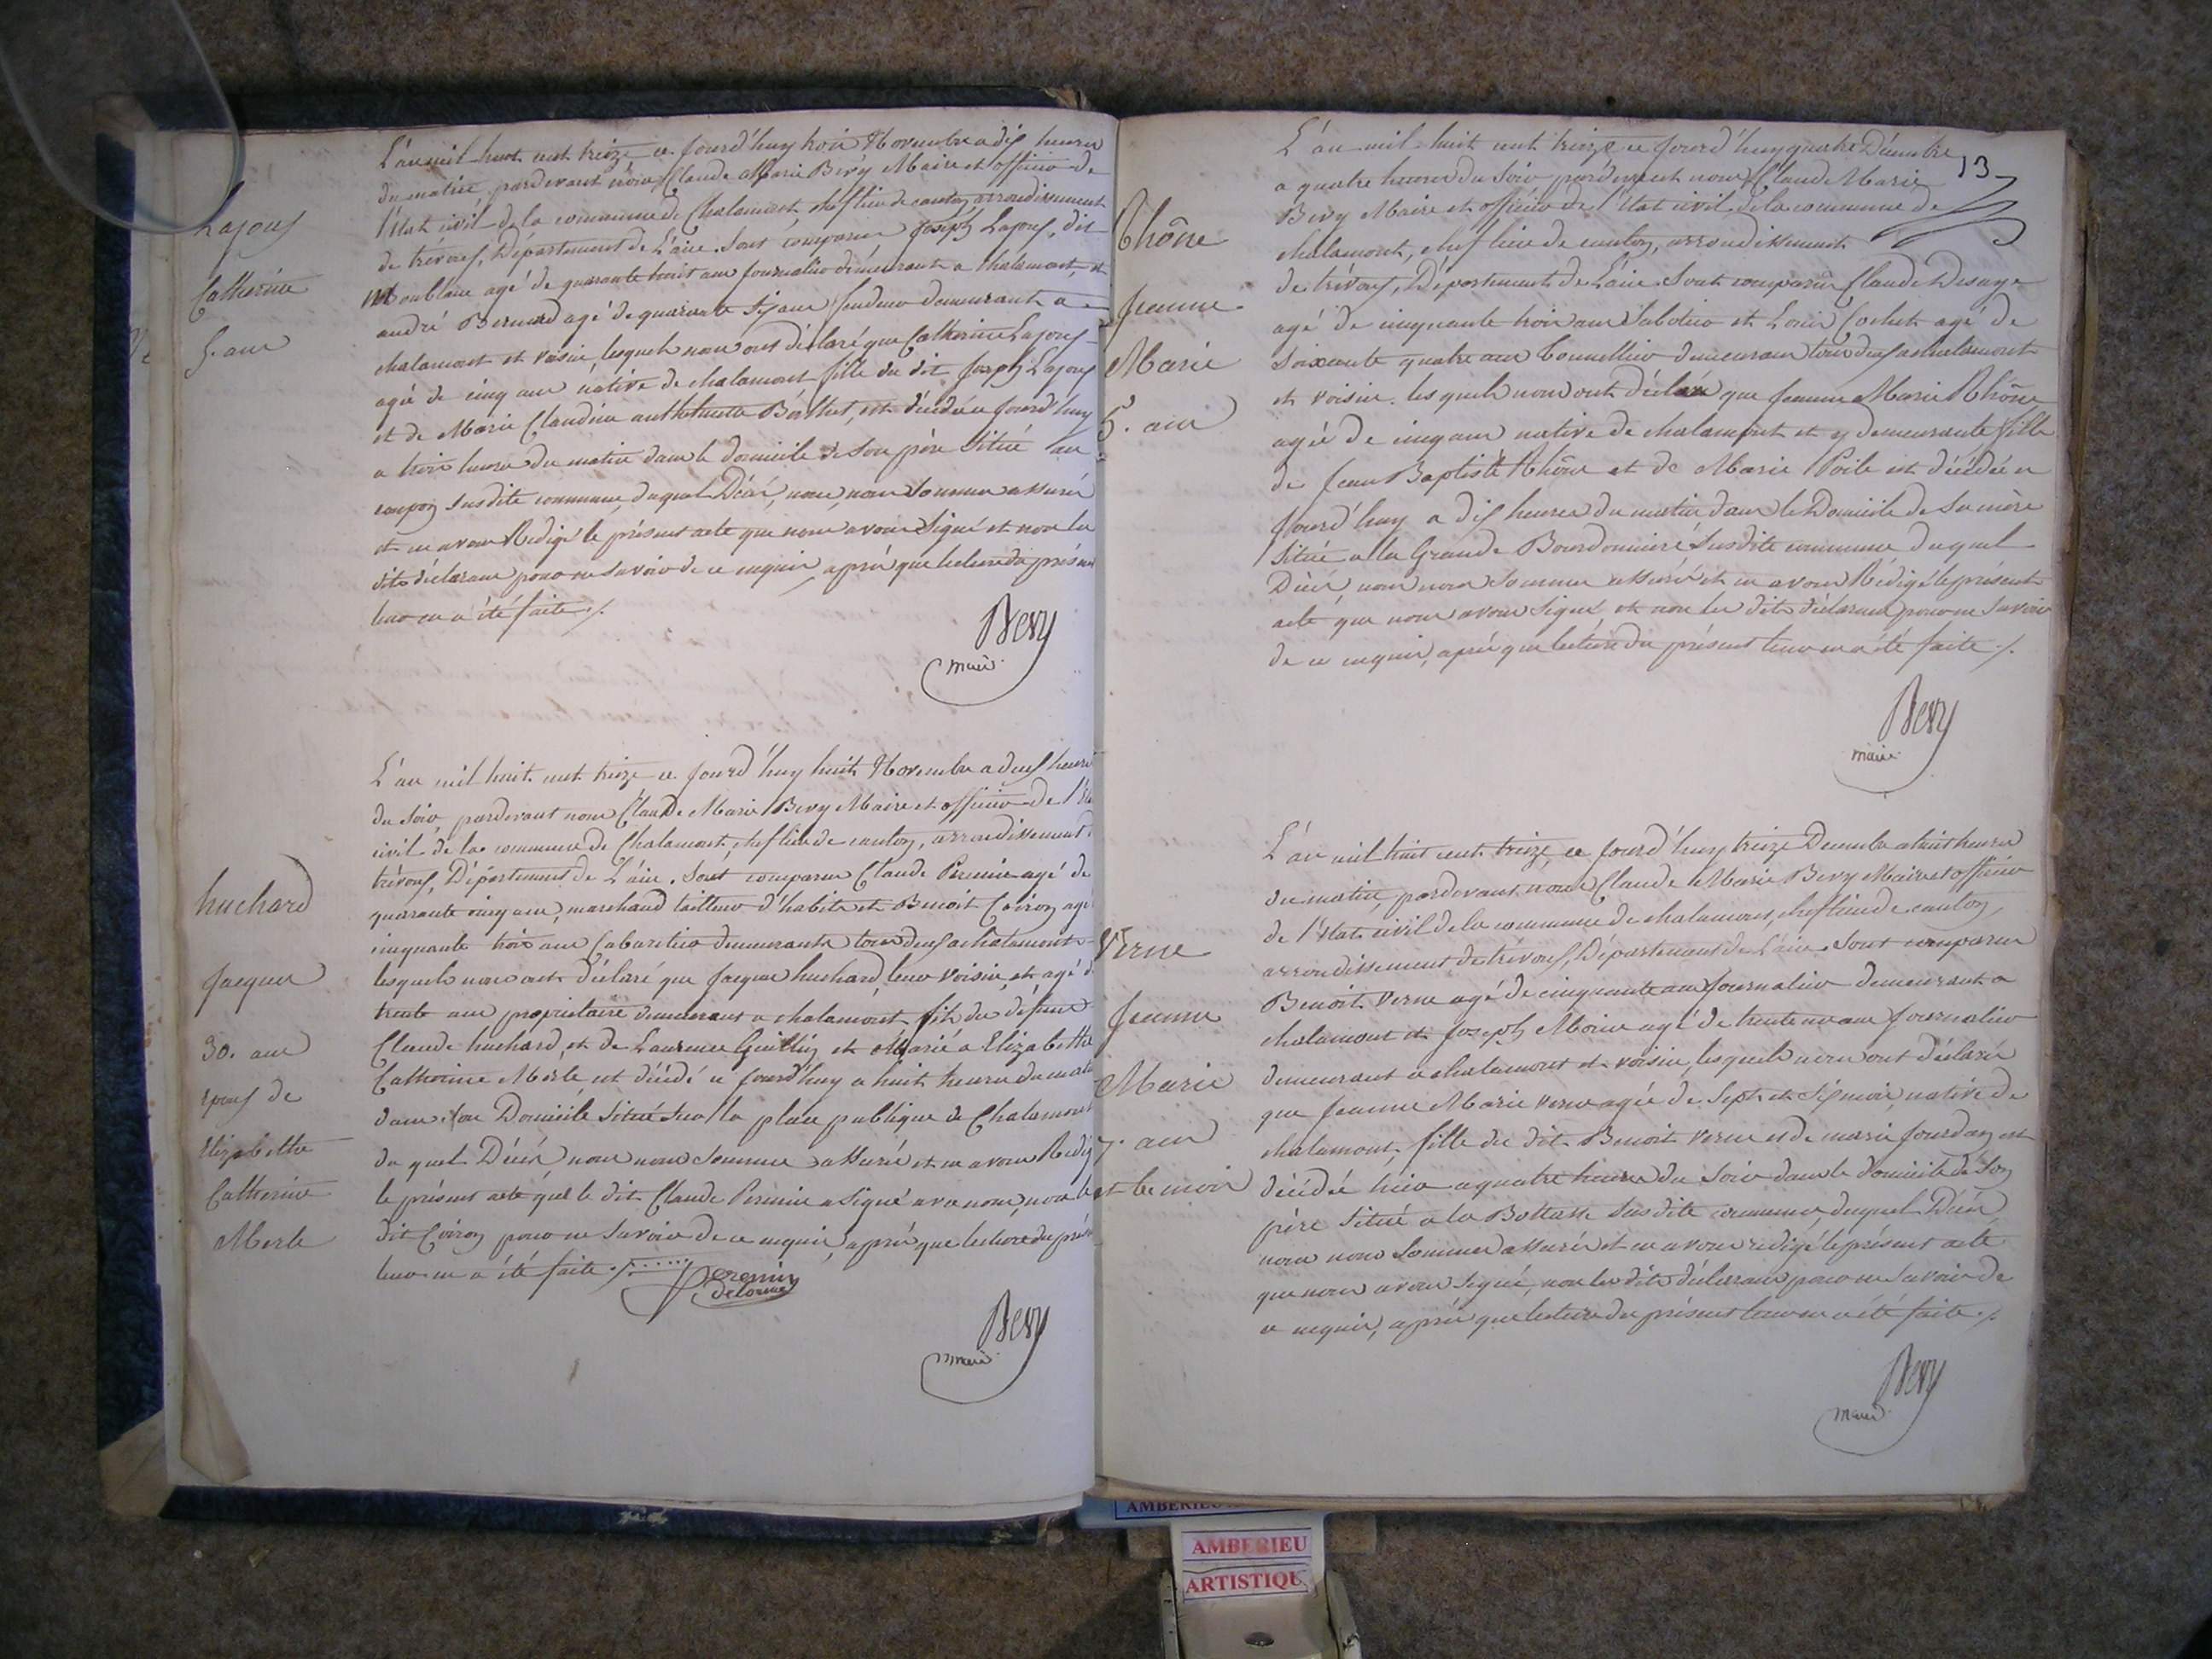 Lajoux
Catherine
5. ans
L'an mil huit cent treize ce jourd'huy trois Novembre a dix heures
du matin pardevant nous Claude Marie Bevy Maire et officier de
l'Etat civil de la commune de Chalamont chef lieu de canton arrondissement
de trévoux, Département de L'ain. Sont comparus Joseph Lajoux, dit
agé de quarante huit ans journalier demeurant a chalamont, et
andré Bernard agé de quarante six ans fendeur demeurant a
chalamont et voisin, lesquels nous ont déclaré que Catherine Lajoux
agée de cinq ans native de chalamont fille du dit Joseph Lajoux
et de Marie Claudine anthelmette Berthet, est décédée ce jourd'huy
a trois heures du matin dans le domicile de son père Situé au
susdite commune, duquel Décès, nous, nous sommes assurés
et en avons Redigé le présent acte que nous avons Signé et non les
dits déclarans pour ne savoir de ce enquis, après que lecture du présent
leur en a été faite ./.
Bevy
maire
huchard
Jacques
30. ans
epoux de
Elizabethe
Catherine
Merle
L'an mil huit cent treize ce jourd'huy huit Novembre a deux heures
du Soir pardevant nous Claude Marie Bevy Maire et officier de l'Eta
civil de la commune de Chalamont, chef lieu de canton, arrondissement d
trévoux, Département de L'ain. Sont comparus Claude Peremin agé de
quarante cinq ans, marchand tailleur d'habits et Benoit Coiron agé
cinquante trois ans Cabaretier demeurants tous deux a chalamont
lesquels nous ont déclaré que Jacques huchard, leur voisin, et agé d
trente ans propriétaire demeurant a chalamont fils du défunt
Claude huchard, et de Laurence Guillin et Marié a Elizabethe
Catherine Merle est décédé ce jourd'huy a huit heures du matin
dans son Domicile Situé sur la place publique de Chalamont
du quel Décès nous nous sommes assurés et en avons Redig
le présent acte que le dit Claude Peremin a Signé avec nous, non le
dit Coiron pour ne savoir de ce enquis, après que lecture du présent
leur en a été faite ./.
Peremin
Delorme
Bevy
maire
13
Rhône
Jeanne
Marie
5. ans
L'an mil huit cent treize ce jourd'huy quatre Décembre
a quatre heures du Soir pardevant nous Claude Marie
Bevy Maire et officier de l'Etat civil de la commune de
chalamont, chef lieu de canton, arrondissement
de trévoux, Département de L'ain. Sont comparus Claude Desage
agé de cinquante trois ans Sabotier et Louis Cochet agé de
Soixante quatre ans tonnellier demeurans tous deux a chalamont
et voisin. lesquels nous ont déclaré que Jeanne Marie Rhône
agée de cinq ans native de chalamont et y demeurante fille
de Jean Baptiste Rhône et de Marie Poile est décédée ce
jourd'huy a dix heures du matin dans le Domicile de sa mère
Situé a la Grande Bourdonniere Susdite commune duquel
Décès nous nous sommes assurés et en avons Rédigé le présent
acte que nous avons Signé et non les dits déclarans pour ne savoir
de ce enquis, après que lecture du présent leur en a été faite ./.
Bevy
maire
Verne
Jeanne
Marie
7. ans
et 6 mois
L'an mil huit cent treize, ce jourd'huy treize Decembre a huit heures
du matin, pardevant nous Claude Marie Bevy Maire et officier
de l'Etat civil de la commune de chalamont, chef lieu de canton,
arrondissement de trévoux, Département de L'ain. Sont comparus
Benoit Verne agé de cinquante ans journalier demeurant a
chalamont et Joseph Moine agé de trente neuf ans journalier
demeurant a chalamont et voisin, lesquels nous ont déclaré
que Jeanne Marie verne agée de Sept et six mois, native de
chalamont, fille du dit Benoit verne et de marie Jourdan est
décédée hier a quatre heures du Soir dans le domicile de Son
père Situé a la Bottasse Susdite commune, duquel Décès
nous nous sommes assurés et en avons redigé le présent acte
que nous avons Signé, non les dits déclarans pour ne Savoir de
ce enquis, après que lecture du présent leur en a été faite ./.
Bevy
maire
AMBERIEU
AMBERIEU
ARTISTIQU